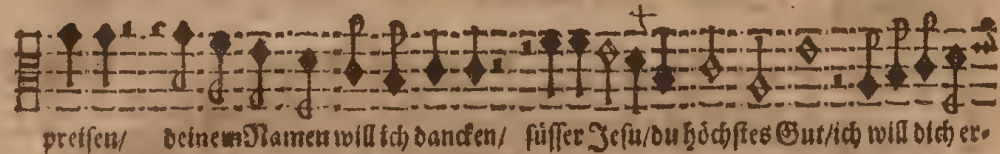 preisen/ deinem Namen will ich dancken/ süsser Jesu/du höchstes Gut/ich will dich er-